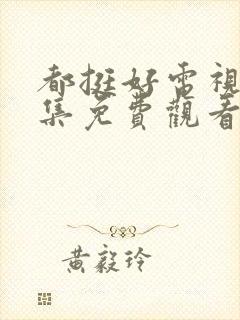 都挺好電視
集免費觀看
黃毅玲